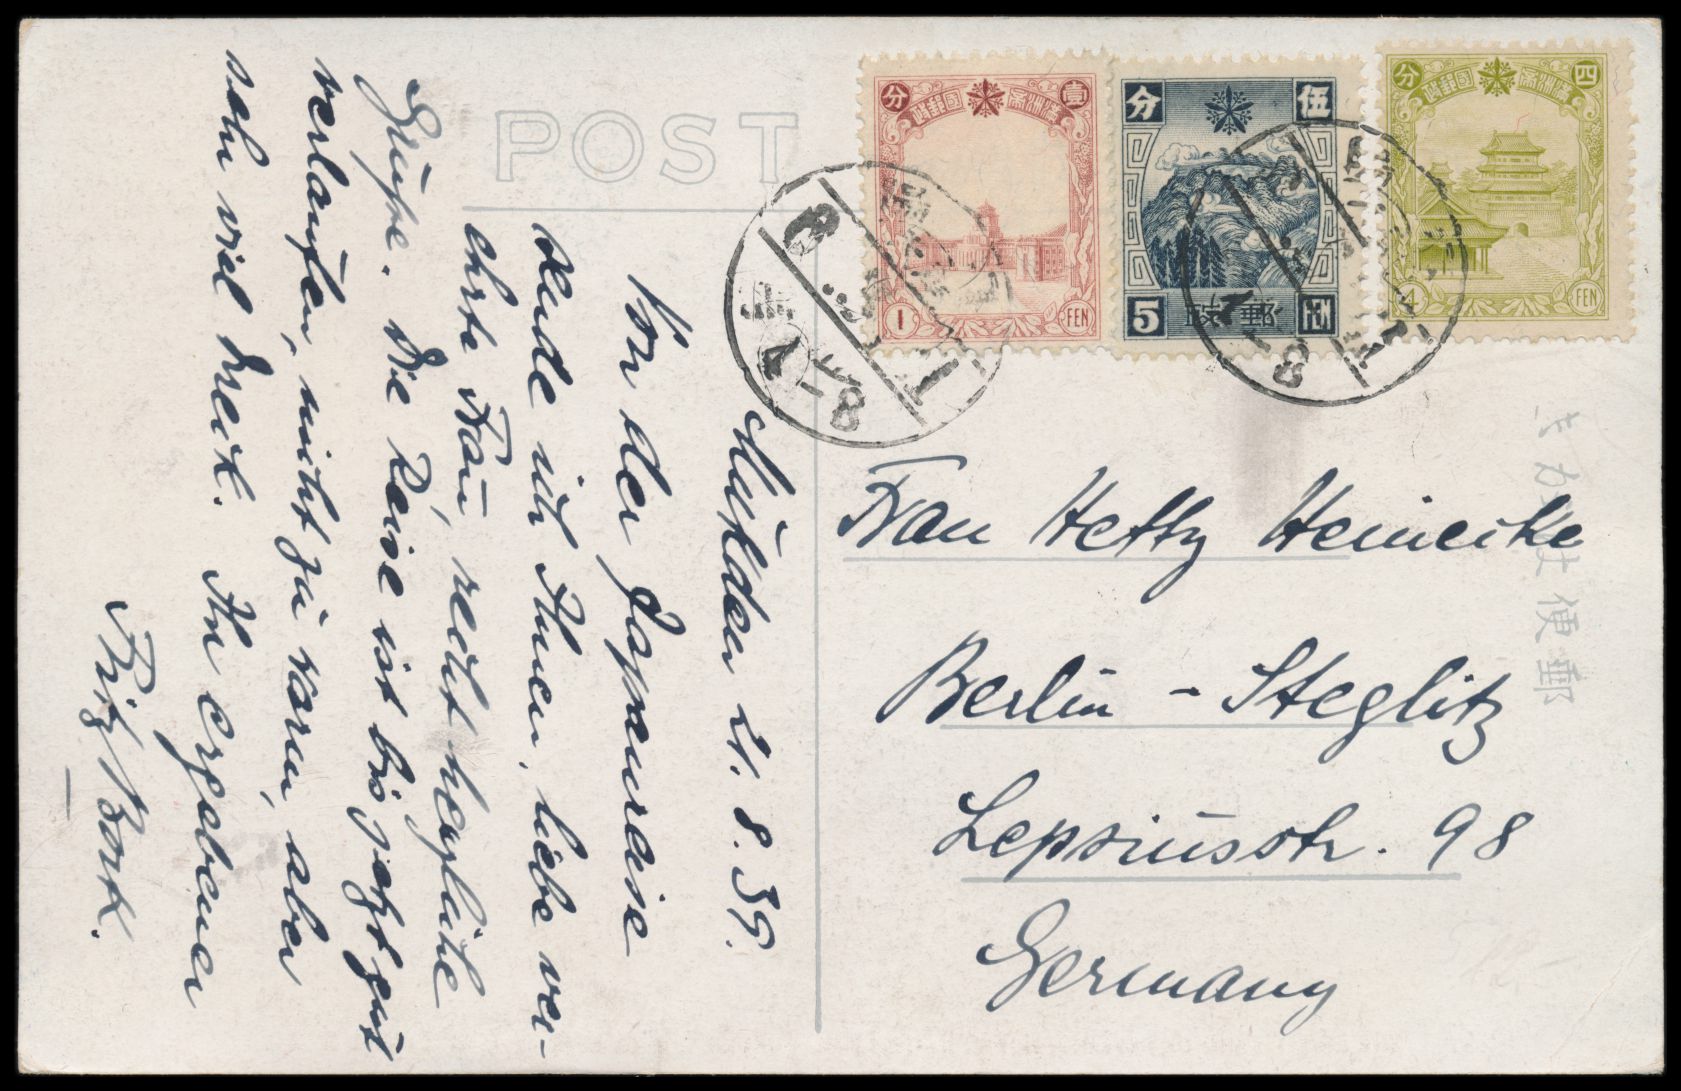 POST
壹
分
滿洲國郵政
1
FEN
伍
分
5
郵政
FEN
四
分
滿洲國郵政
4
FEN
8
4-8
4-8
Mukden 21. 8. 39.
Von der Japanreise
sende ich Ihnen, liebe ver-
ehrte Frau, recht herzliche
Grüße. Die Reise ist bis jetzt gut
verlaufen, nicht zu warm, aber
sehr viel Dreck. Ihr ergebener
Fritz Bork.
Frau Hetty Heinecke
Berlin - Steglitz
Lepsiusstr. 98
Germany
郵便はかき